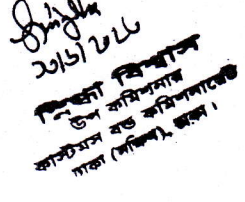 ২০/১/২০২০
বিশ্বাস
উপ কমিশনার
কাস্টমস বন্ড কমিশনারেট
ঢাকা (দক্ষিণ), ঢাকা।